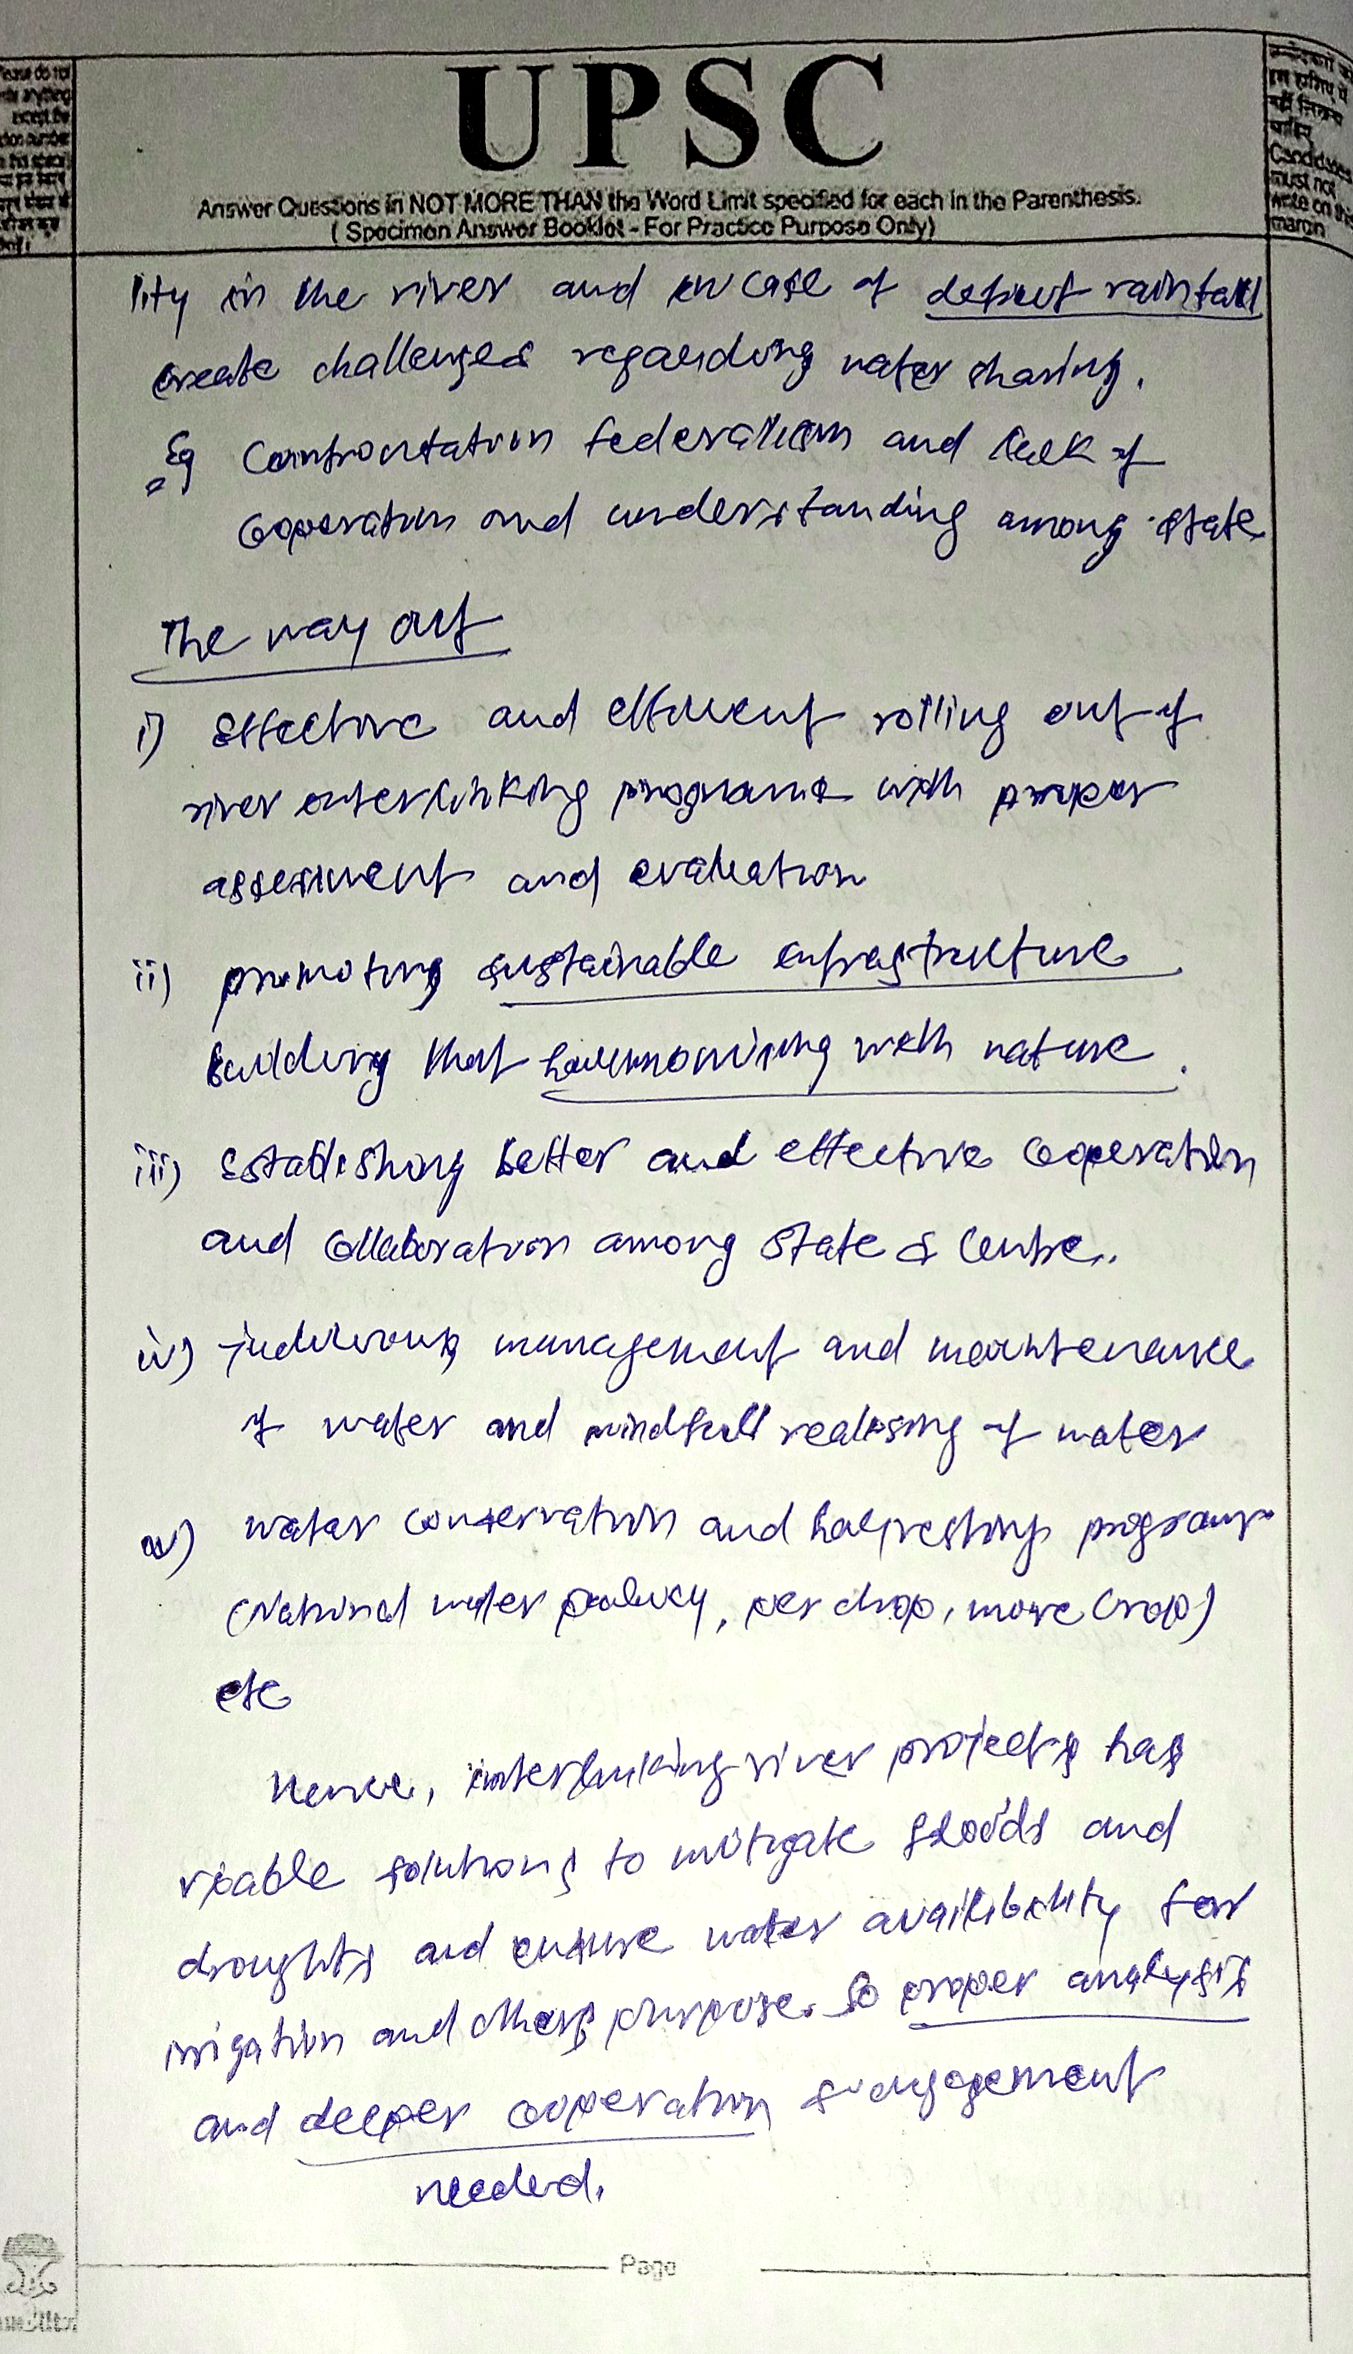 Please do not
write anything
except the
question number
in this space
UPSC
Answer Questions in NOT MORE THAN the Word Limit specified for each in the Parenthesis.
( Specimen Answer Booklet - For Practice Purpose Only)
उम्मीदवारों को
इस हाशिए में
नहीं लिखना
चाहिए
Candidates
must not
write on this
margin
lity in the river and in case of deficit rainfall
create challenges regarding water sharing.
Eg Confrontation federalism and lack of
Cooperation and understanding among state
The way out
i) Effective and efficient rolling out of
river interlinking programe with proper
assessment and evaluation
ii) promoting sustainable infrastructure
building that harmonising with nature.
iii) Establishing better and effective Cooperation
and Collaboration among State & Centre.
iv) judicious management and maintenance
of water and mindfull realising of water
v) water conservation and harvesting program
(National water policy, per drop, more Crop)
etc
Hence, interlinking river projects has
viable solutions to mitigate floods and
droughts and ensure water availibility for
irrigation and others purpose. So proper analysis
and deeper cooperation & engagement
needed.
Page